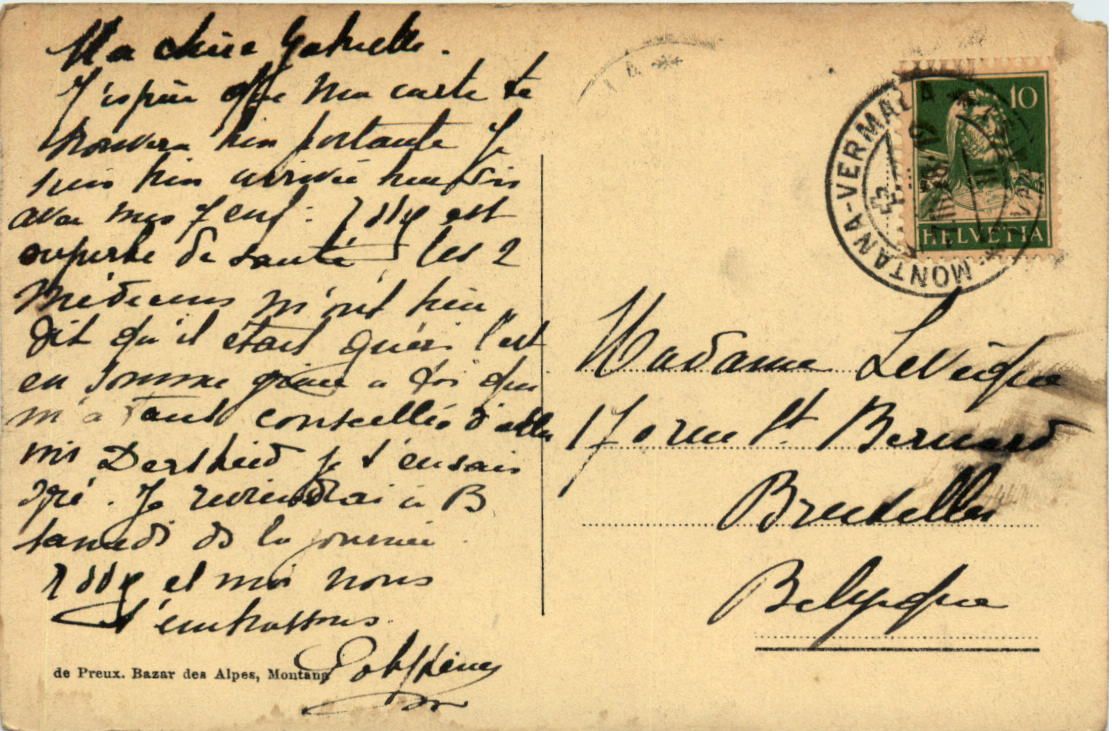 Ma chère Gabrielle.
J'espère que ma carte te
trouvera bien portante Je
suis bien arrivée
avec mes 7 enf. est
superbe de santé, les 2
médecins m'ont bien
dit qu'il était guéri c'est
en somme grâce à toi qui
m'a tant conseillée d'aller
je t'en sais
gré. Je reviendrai à B
samedi ds la journée.
et moi nous
t'embrassons.
de Preux. Bazar des Alpes, Montana
MONTANA-VERMALA
10
HELVETIA
Madame Levêque
170 rue St Bernard
Bruxelles
Belgique